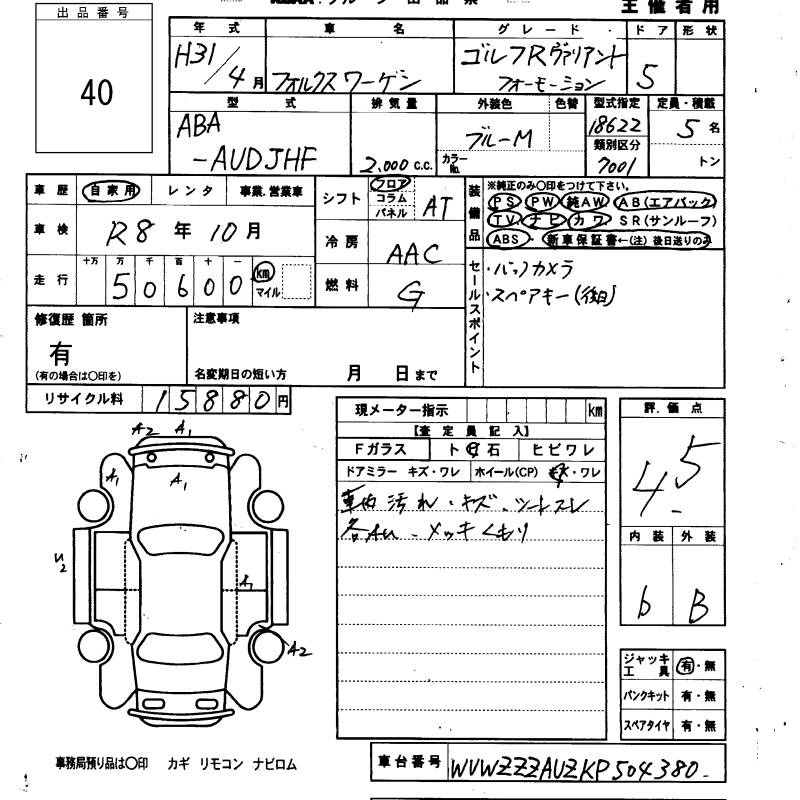 出品番号
40
主催者用
年式 車名 グレード ドア 形状
H31/4月 フォルクスワーゲン ゴルフRヴァリアント 5
フォーモーション
型式 排気量 外装色 色替 型式指定 定員・積載
ABA 18622 5名
-AUDJHF 2.000 c.c. ブルーM 類別区分
カラーNo. 7001 トン
車歴 自家用 レンタ 事業.営業車
シフト フロア コラム パネル AT
装備品 ※純正のみ○印をつけて下さい。
PS PW 純AW AB(エアバック)
TV ナビ カワ SR(サンルーフ)
ABS・新車保証書←(注)後日送りのみ
車検 R8年10月
冷房 AAC
走行 十万 万 千 百 十 一
50600 km マイル
燃料 G
セールスポイント ・バックカメラ
・スペアキー(後日)
修復歴 箇所 注意事項
有
(有の場合は○印を) 名変期日の短い方 月 日まで
リサイクル料 15880円
現メーター指示 km
評.価点
4.5
【査定員記入】
Fガラス ト日石 ヒビワレ
ドアミラー キズ・ワレ ホイール(CP) キズ・ワレ
車内汚れ・キズ、シートスレ
各AU、メッキくもり
内装 外装
b B
A2 A1
A1 A1
U2
A1
A2
ジャッキ工具 有・無
パンクキット 有・無
スペアタイヤ 有・無
事務局預り品は○印 カギ リモコン ナビロム
車台番号 WVWZZZAUZKP504380